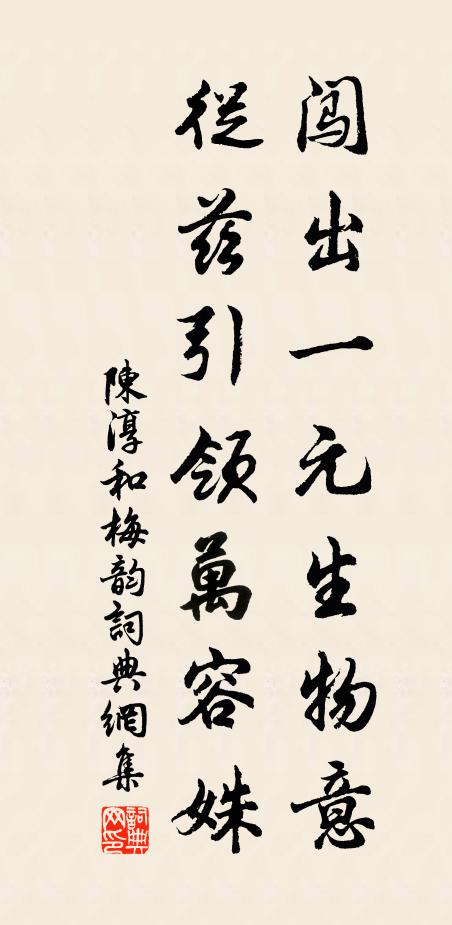 闖出一元生物意
從茲引領萬容姝
陳淳和梅韵詞典網集
詞典网印